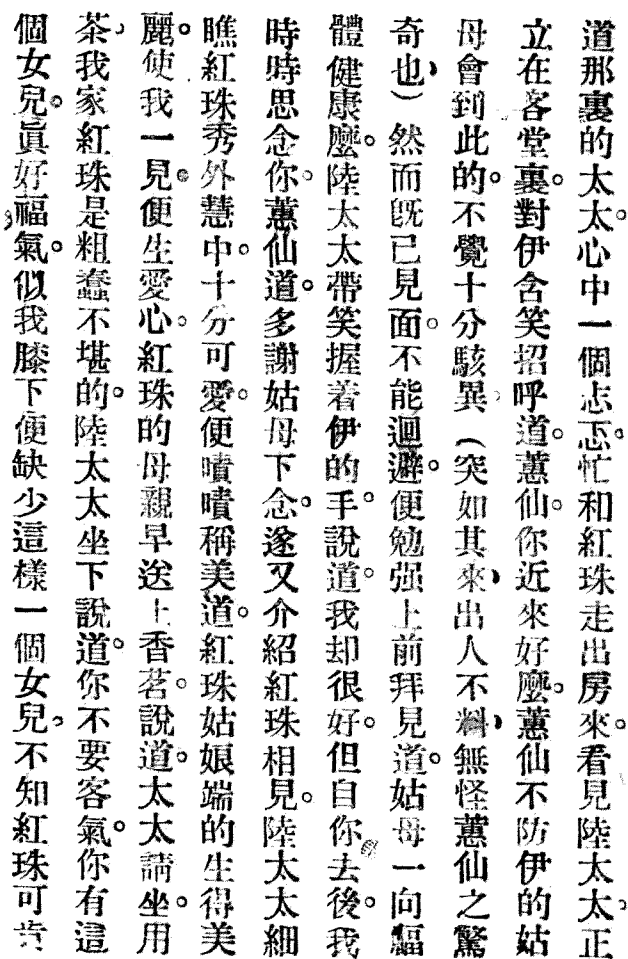 道那裏的太太。心中一個忐忑。忙和紅珠走出房來。看見陸太太。正
立在客堂裏。對伊含笑招呼道。蕙仙。你近來好麼。蕙仙不防伊的姑
母會到此的。不覺十分駭異。(突如其來、出人不料、無怪蕙仙之驚
奇也、)然而旣已見面。不能迴避。便勉强上前拜見道。姑母一向福
體健康麼。陸太太帶笑握着伊的手。說道。我却很好。但自你去後。我
時時思念你。蕙仙道。多謝姑母下念。遂又介紹紅珠相見。陸太太細
瞧紅珠秀外慧中。十分可愛。便嘖嘖稱美道。紅珠姑娘端的生得美
麗。使我一見。便生愛心。紅珠的母親早送上香茗。說道。太太請坐。用
茶。我家紅珠是粗蠢不堪的。陸太太坐下說道。你不要客氣。你有這
個女兒。眞好福氣。似我膝下便缺少這樣一個女兒。不知紅珠可肯